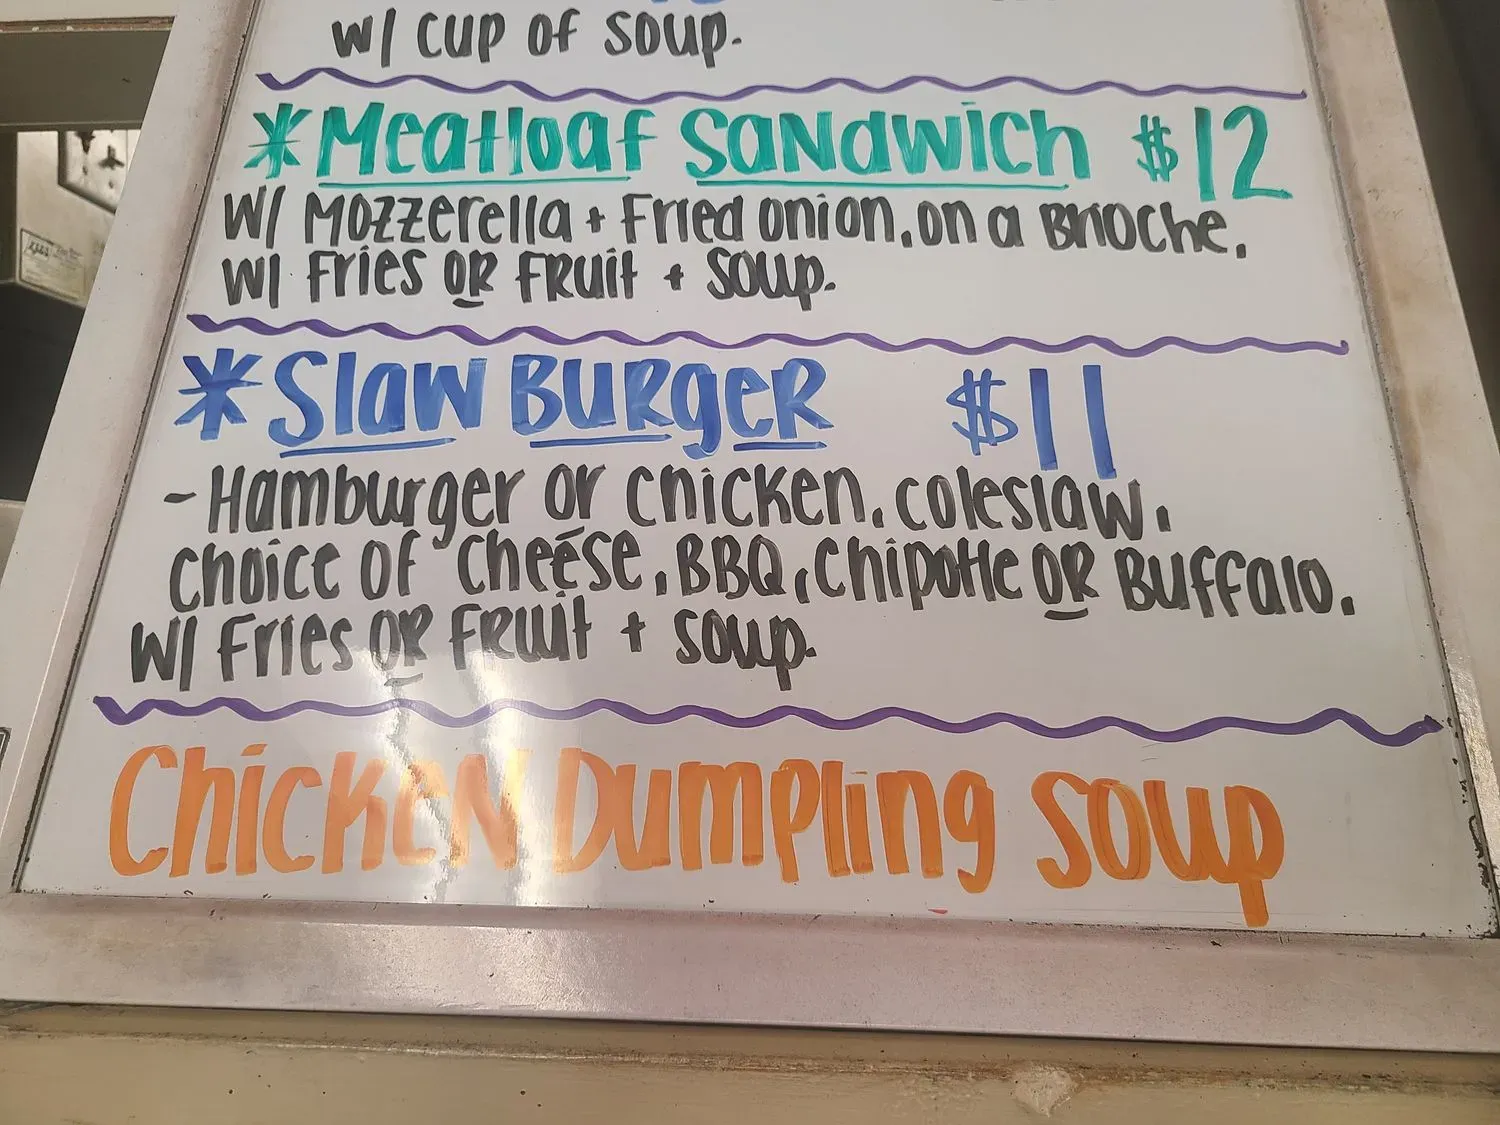 w/ cup of soup.
*Meatloaf Sandwich $12
w/ Mozzerella + Fried onion, on a Brioche.
w/ Fries OR Fruit + Soup.
*Slaw Burger $11
- Hamburger or chicken, coleslaw,
choice of cheese, BBQ, Chipotle OR Buffalo.
w/ Fries OR Fruit + soup.
Chicken Dumpling Soup